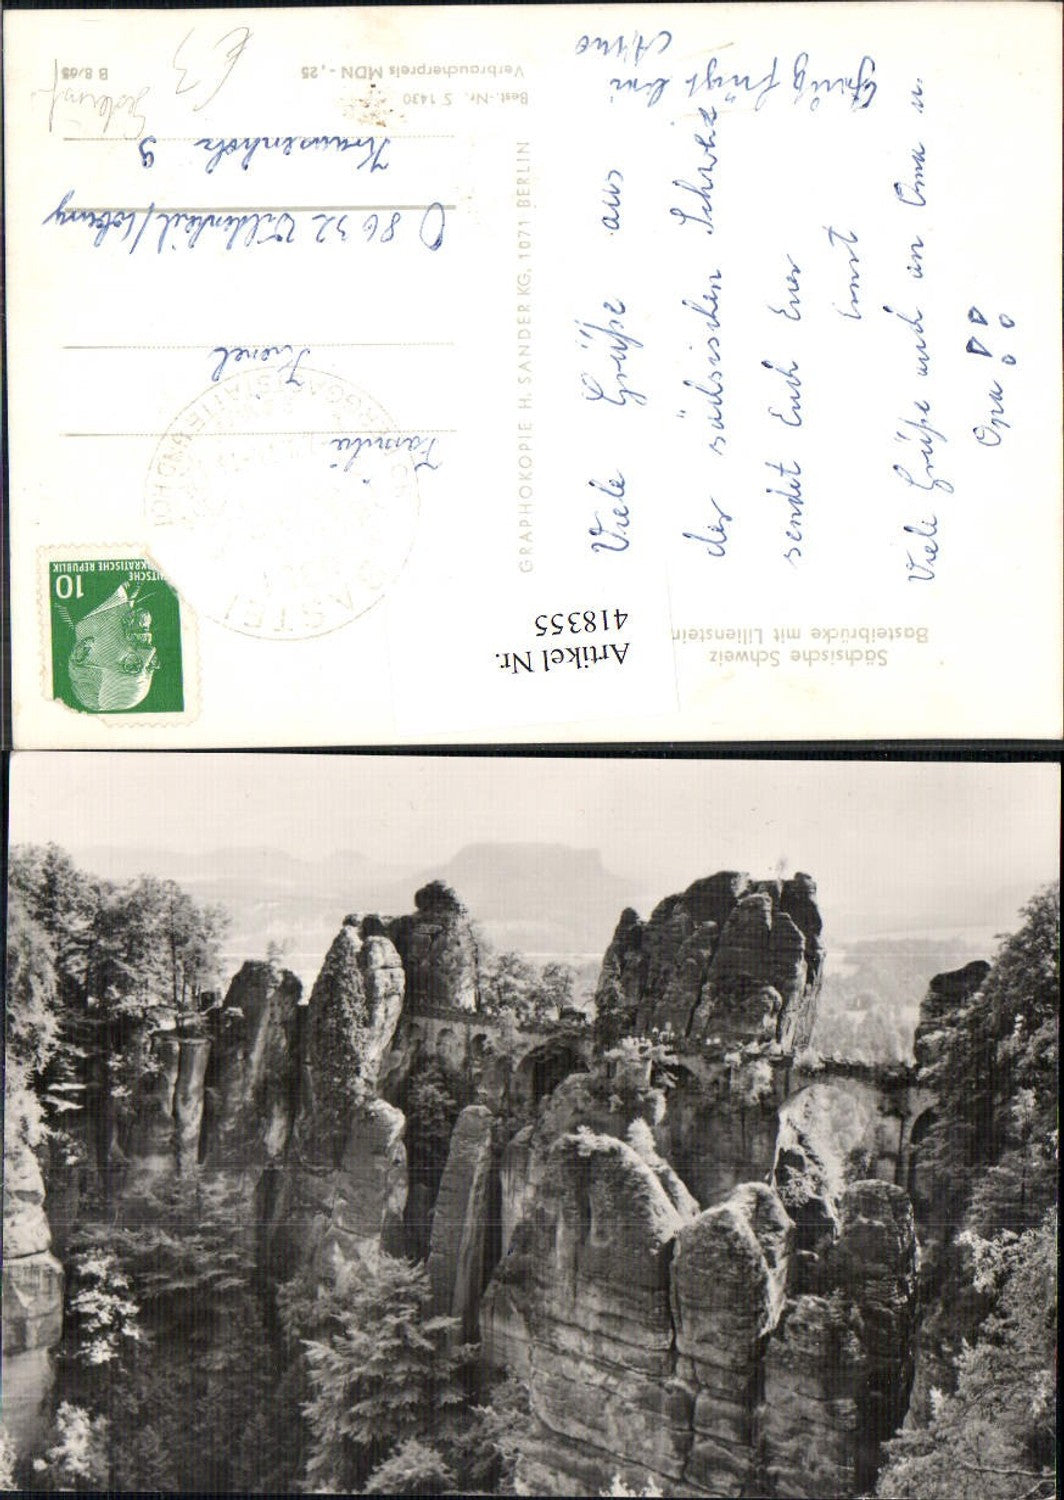 Sächsische Schweiz
Basteibrücke mit Lilienstein
Artikel Nr.
418355
Viele Grüße aus
der sächsischen Schweiz
sendet Euch Euer
Ernst
Viele Grüße auch an Oma u
Opa !!
Arno
GRAPHOKOPIE H. SANDER KG, 1071 BERLIN
DEUTSCHE
DEMOKRATISCHE REPUBLIK
10
BASTEI
Familie
8632
9
Best.-Nr. S 1430
Verbraucherpreis MDN -,25
B 8/65
€ 3